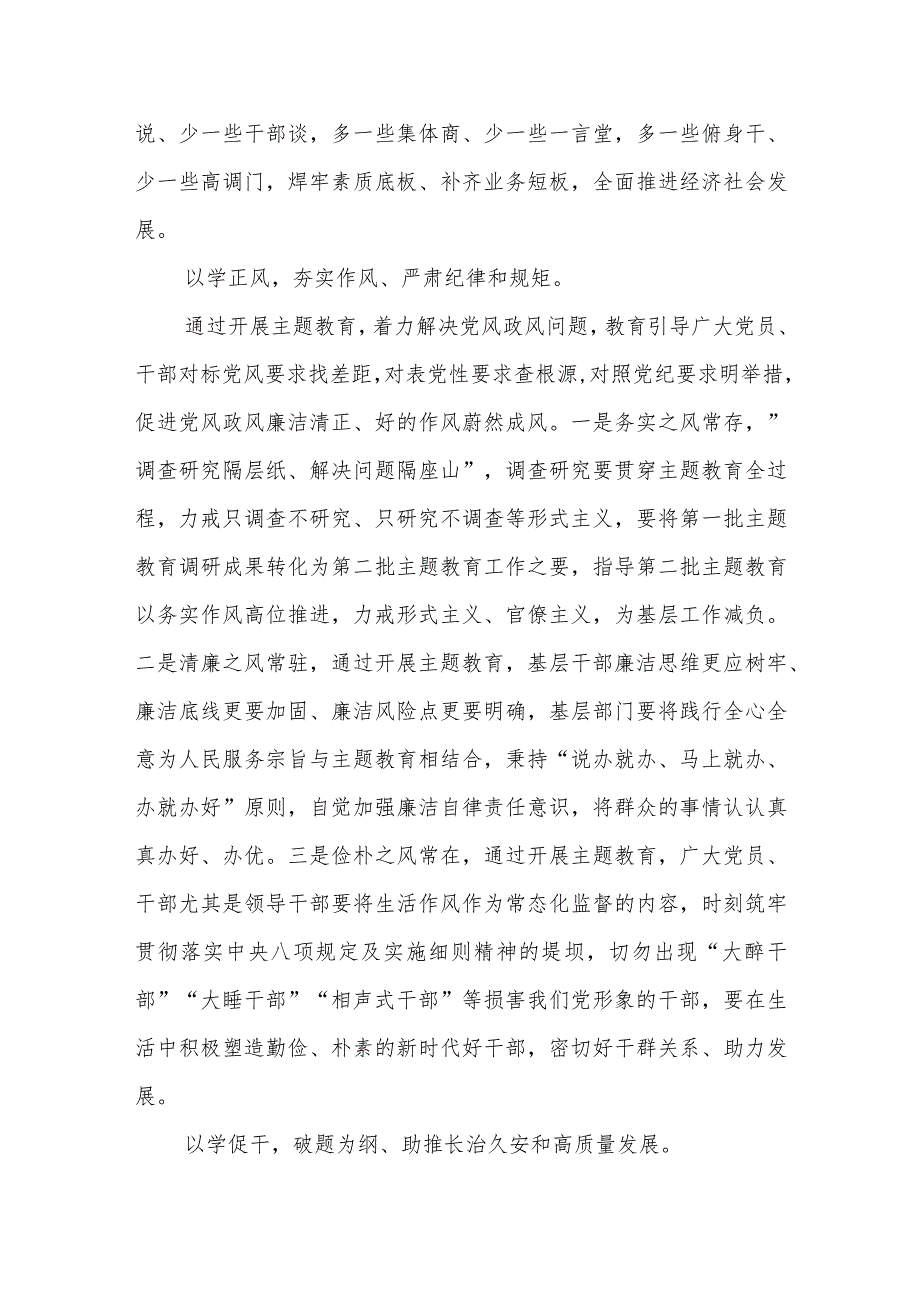 说、少一些干部谈，多一些集体商、少一些一言堂，多一些俯身干、
少一些高调门，焊牢素质底板、补齐业务短板，全面推进经济社会发
展。
以学正风，夯实作风、严肃纪律和规矩。
通过开展主题教育，着力解决党风政风问题，教育引导广大党员、
干部对标党风要求找差距，对表党性要求查根源，对照党纪要求明举措，
促进党风政风廉洁清正、好的作风蔚然成风。一是务实之风常存，”
调查研究隔层纸、解决问题隔座山”，调查研究要贯穿主题教育全过
程，力戒只调查不研究、只研究不调查等形式主义，要将第一批主题
教育调研成果转化为第二批主题教育工作之要，指导第二批主题教育
以务实作风高位推进，力戒形式主义、官僚主义，为基层工作减负。
二是清廉之风常驻，通过开展主题教育，基层干部廉洁思维更应树牢、
廉洁底线更要加固、廉洁风险点更要明确，基层部门要将践行全心全
意为人民服务宗旨与主题教育相结合，秉持“说办就办、马上就办、
办就办好”原则，自觉加强廉洁自律责任意识，将群众的事情认认真
真办好、办优。三是俭朴之风常在，通过开展主题教育，广大党员、
干部尤其是领导干部要将生活作风作为常态化监督的内容，时刻筑牢
贯彻落实中央八项规定及实施细则精神的堤坝，切勿出现“大醉干
部”“大睡干部”“相声式干部”等损害我们党形象的干部，要在生
活中积极塑造勤俭、朴素的新时代好干部，密切好干群关系、助力发
展。
以学促干，破题为纲、助推长治久安和高质量发展。